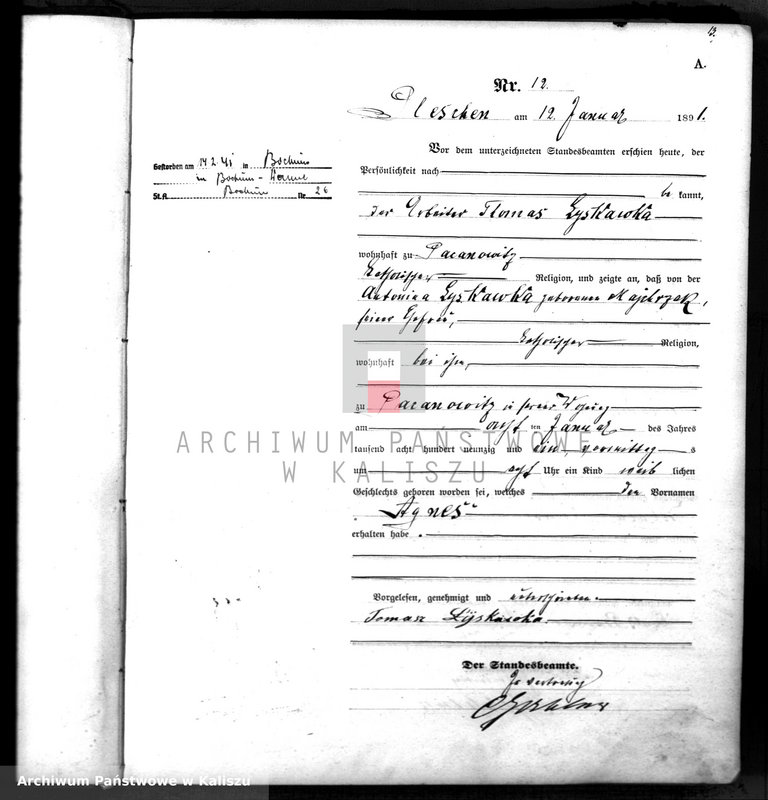 13.
A.
Nr. 12.
Pleschen am 12. Januar 1891.
Vor dem unterzeichneten Standesbeamten erschien heute, der
Persönlichkeit nach
be kannt,
der Arbeiter Thomas Lyskawka
wohnhaft zu Pacanowitz
katholischer Religion, und zeigte an, daß von der
Antonina Lyskawka geborenen Majchrzak,
seiner Ehefrau,
katholischer Religion,
wohnhaft bei ihm,
zu Pacanowitz in seiner Wohnung
am acht ten Januar des Jahres
tausend acht hundert neunzig und ein, vormittag s
um acht Uhr ein Kind weib lichen
Geschlechts geboren worden sei, welches den Vornamen
Agnes
erhalten habe.
Vorgelesen, genehmigt und unterschrieben.
Tomasz Lyskawka
Der Standesbeamte.
In Vertretung
Gestorben am 14.2.41 in Bochum
in Bochum-
St.A. Bochum Nr. 26
ARCHIWUM PAŃSTWOWE
W KALISZU
Archiwum Państwowe w Kaliszu